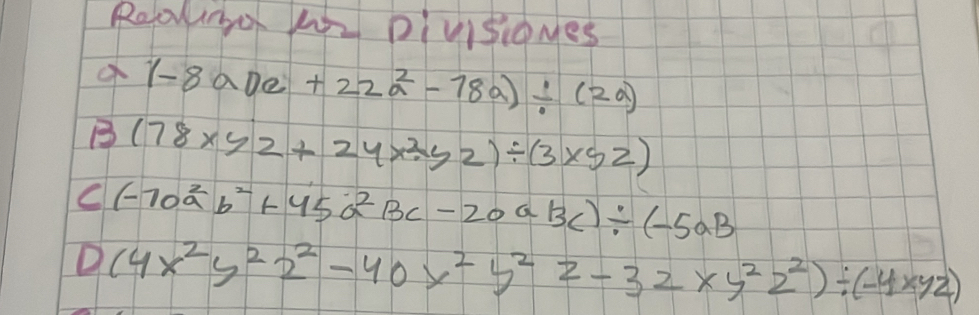 Realizar las Divisiones
a (-8 a b c + 22 a² - 18a) ÷ (2a)
B (18 x y z + 24 x² y z) ÷ (3 x y z)
C (-10 a² b² + 45 a² B c - 20 a B c) ÷ (-5 a B
D (4x² y² z² - 40 x² y² z - 32 x y² z²) ÷ (-4 x y z)